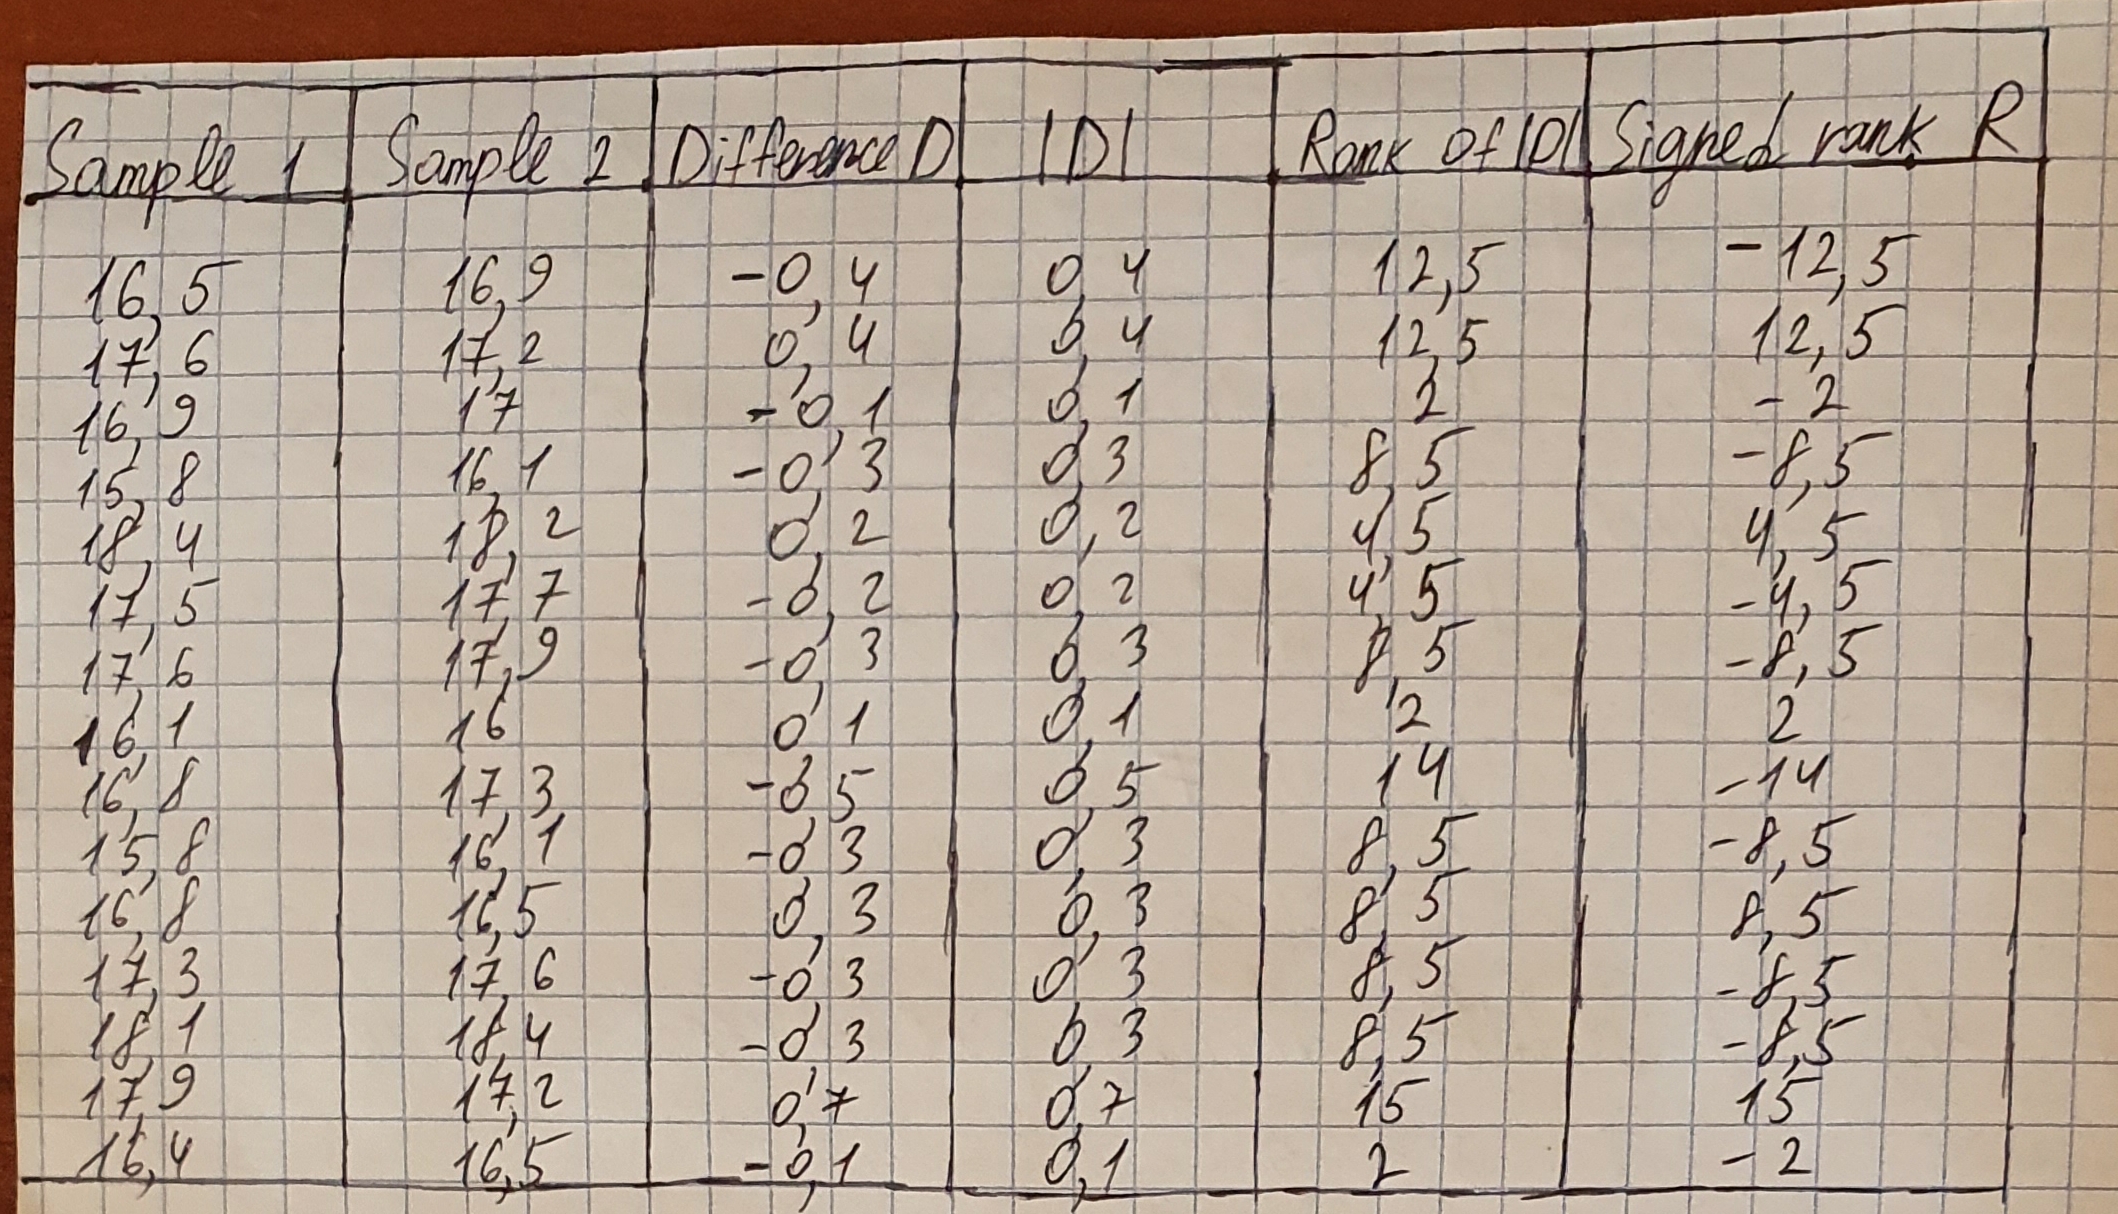 Sample 1 Sample 2 Difference D |D| Rank of |D| Signed rank R
16,5 16,9 -0,4 0,4 12,5 -12,5
17,6 17,2 0,4 0,4 12,5 12,5
16,9 17 -0,1 0,1 2 -2
15,8 16,1 -0,3 0,3 8,5 -8,5
18,4 18,2 0,2 0,2 4,5 4,5
17,5 17,7 -0,2 0,2 4,5 -4,5
17,6 17,9 -0,3 0,3 8,5 -8,5
16,1 16 0,1 0,1 2 2
16,8 17,3 -0,5 0,5 14 -14
15,8 16,1 -0,3 0,3 8,5 -8,5
16,8 16,5 0,3 0,3 8,5 8,5
17,3 17,6 -0,3 0,3 8,5 -8,5
18,1 18,4 -0,3 0,3 8,5 -8,5
17,9 17,2 0,7 0,7 15 15
16,4 16,5 -0,1 0,1 2 -2